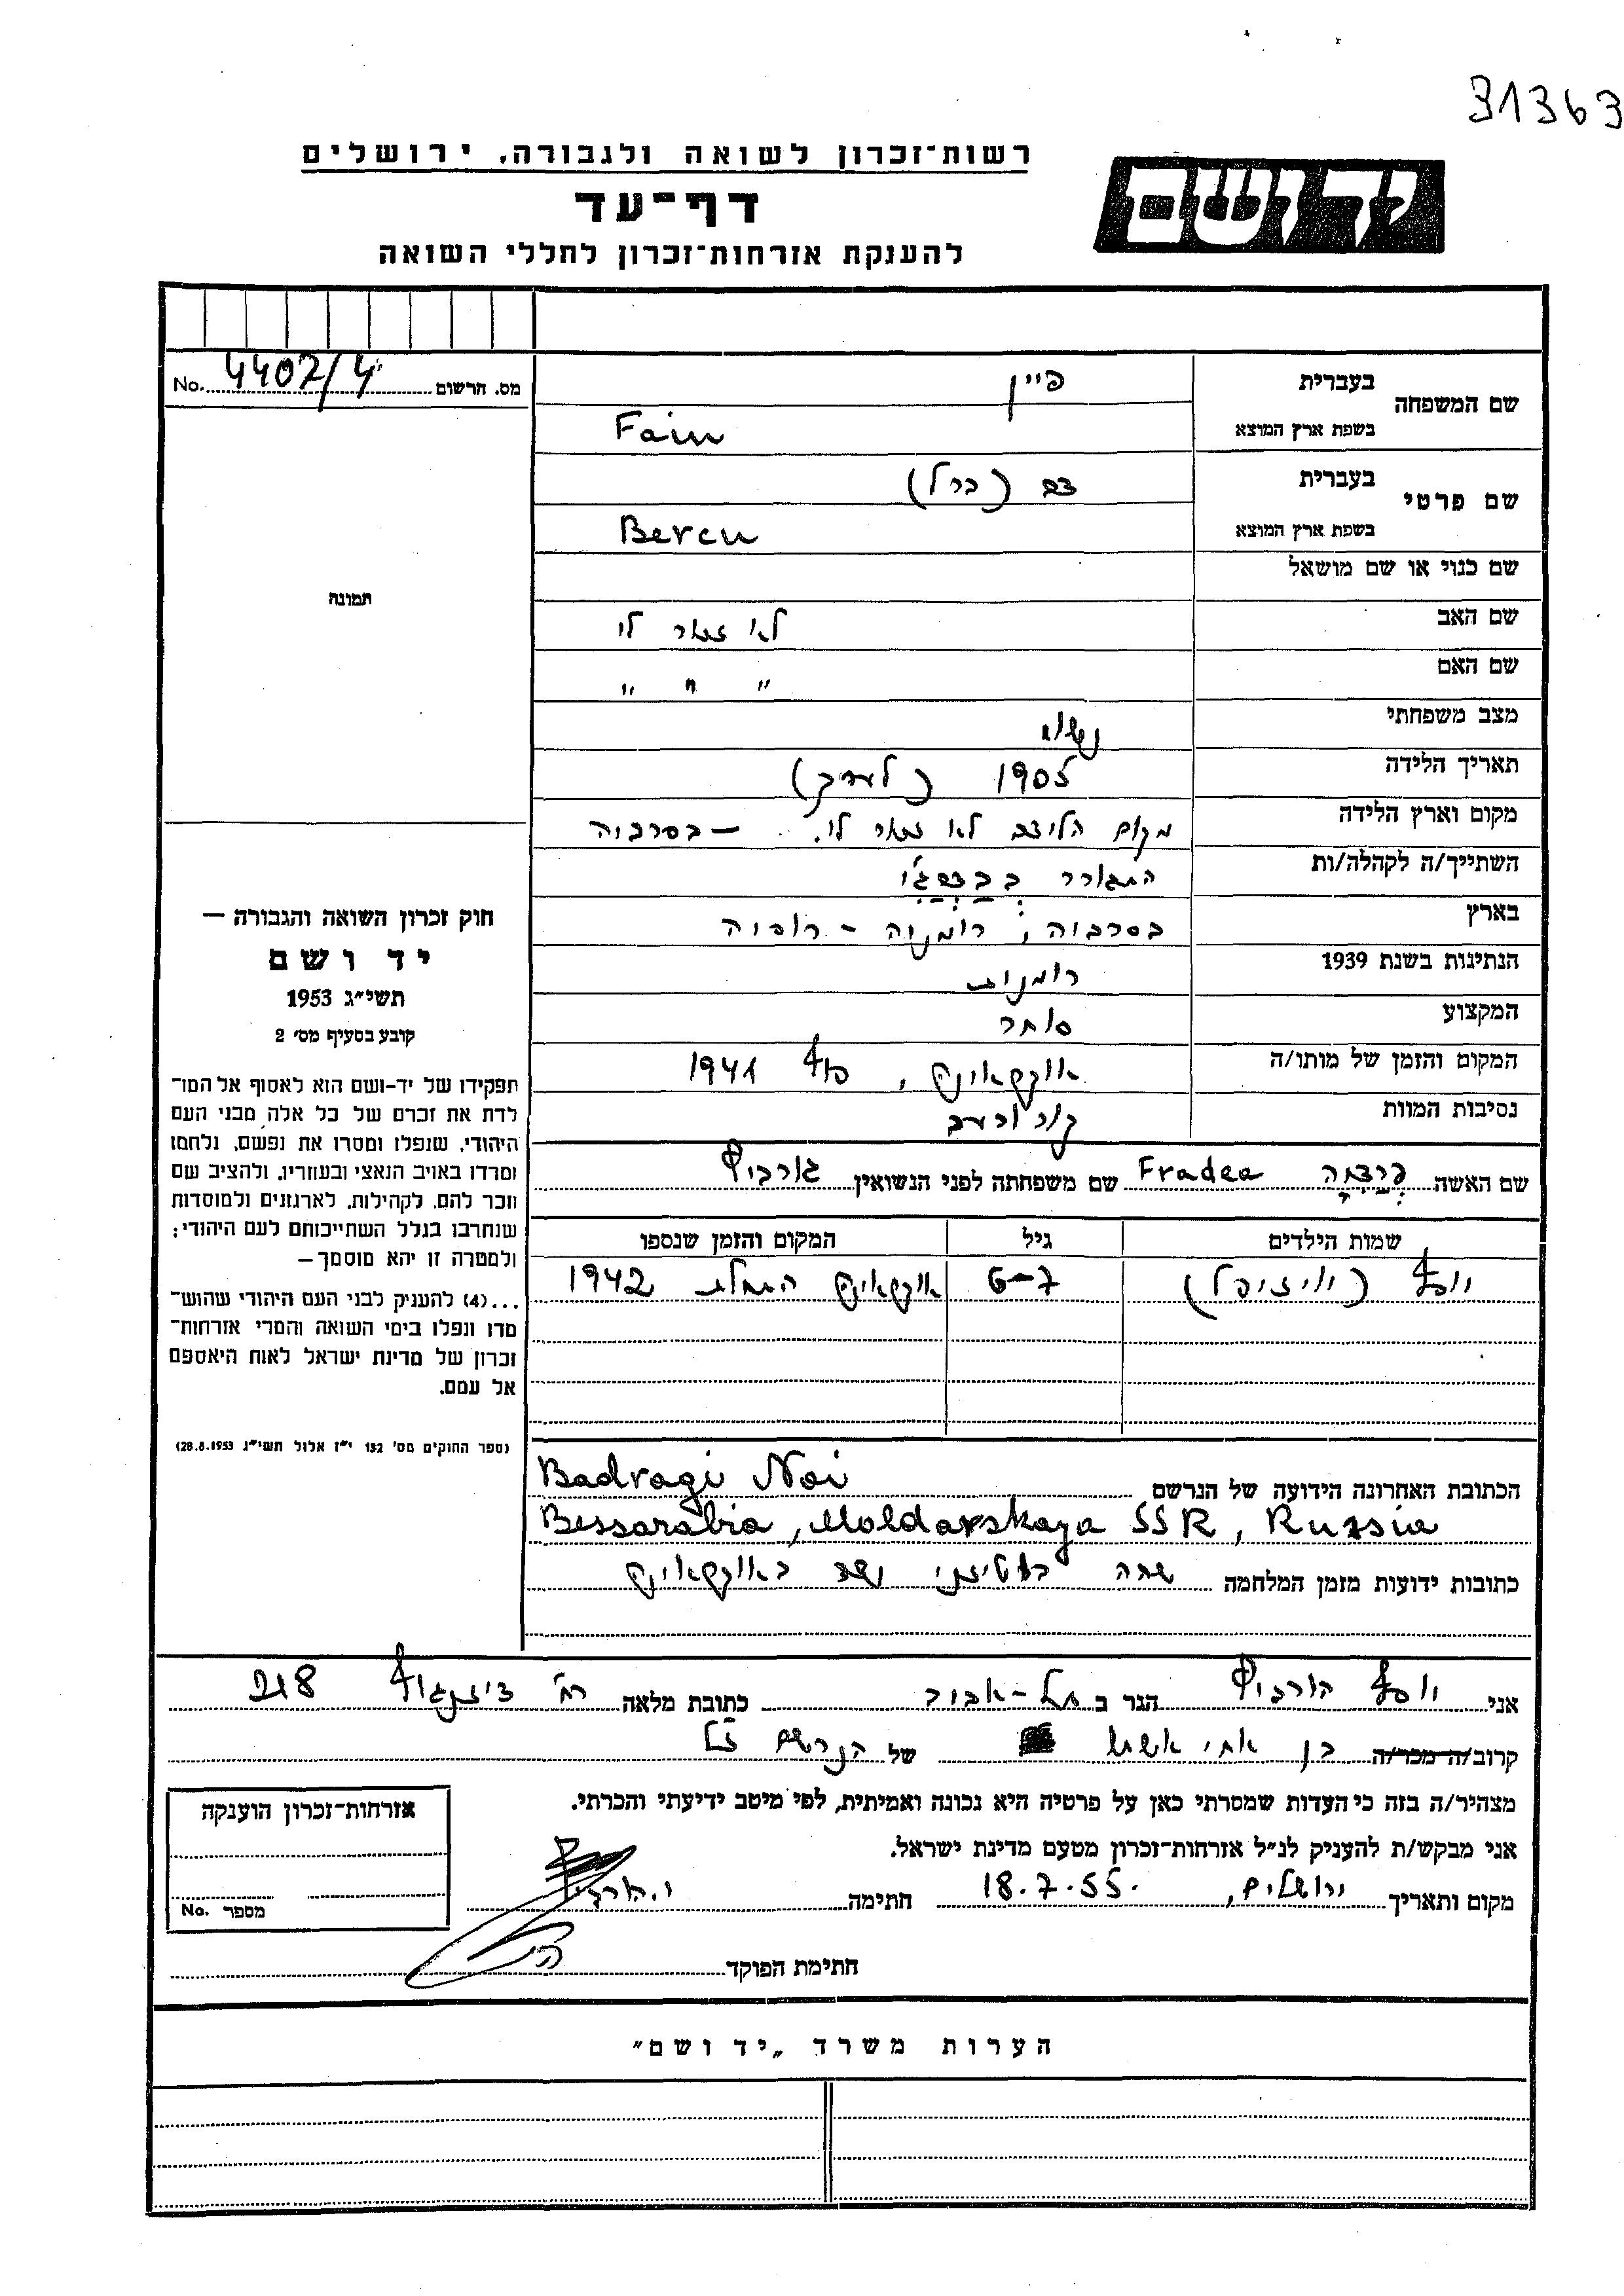 31363
רשות־זכרון לשואה ולגבורה, ירושלים
יד ושם
דף־עד
להענקת אזרחות־זכרון לחללי השואה
מס. הרשום 4407/4 No.
תמונה
שם המשפחה בעברית פיין
בשפת ארץ המוצא Fain
שם פרטי בעברית דב (ברל)
בשפת ארץ המוצא Bercu
שם כנוי או שם מושאל
שם האב לא זכור לי
שם האם " " "
מצב משפחתי נשוי
תאריך הלידה 1905 (לערך)
מקום וארץ הלידה מקום הלידה לא זכור לי. – בסרביה
השתייך/ה לקהלה/ות התגורר
בארץ בסרביה, רומניה – רוסיה
הנתינות בשנת 1939 רומנית
המקצוע סוחר
המקום והזמן של מותו/ה אוקראינה, סוף 1941
נסיבות המוות קור ורעב
שם האשה Fradea שם משפחתה לפני הנשואין
שמות הילדים גיל המקום והזמן שנספו
יוסף 6–7 אוקראינה התחלת 1942
הכתובת האחרונה הידועה של הנרשם Badragi Noi
Bessarabia, Moldavskaya SSR, Russia
כתובות ידועות מזמן המלחמה באוקראינה
אני יוסף הגר ב תל–אביב כתובת מלאה רח' דיזנגוף 218
קרוב/ה מכר/ה בן אחי אשתו של הנרשם ז"ל
מצהיר/ה בזה כי העדות שמסרתי כאן על פרטיה היא נכונה ואמיתית, לפי מיטב ידיעתי והכרתי.
אני מבקש/ת להעניק לנ"ל אזרחות־זכרון מטעם מדינת ישראל.
מקום ותאריך ירושלים, 18.7.55. חתימה
חתימת הפוקד
חוק זכרון השואה והגבורה —
יד ושם
תשי"ג 1953
קובע בסעיף מס' 2
תפקידו של יד-ושם הוא לאסוף אל המו־
לדת את זכרם של כל אלה מבני העם
היהודי, שנפלו ומסרו את נפשם, נלחמו
ומרדו באויב הנאצי ובעוזריו, ולהציב שם
וזכר להם, לקהילות, לארגונים ולמוסדות
שנחרבו בגלל השתייכותם לעם היהודי;
ולמטרה זו יהא מוסמך —
...(4) להעניק לבני העם היהודי שהוש־
מדו ונפלו בימי השואה והמרי אזרחות־
זכרון של מדינת ישראל לאות היאספם
אל עמם.
(ספר החוקים מס' 132 י"ז אלול תשי"ג 28.8.1953)
אזרחות־זכרון הוענקה
מספר No.
הערות משרד „יד ושם"